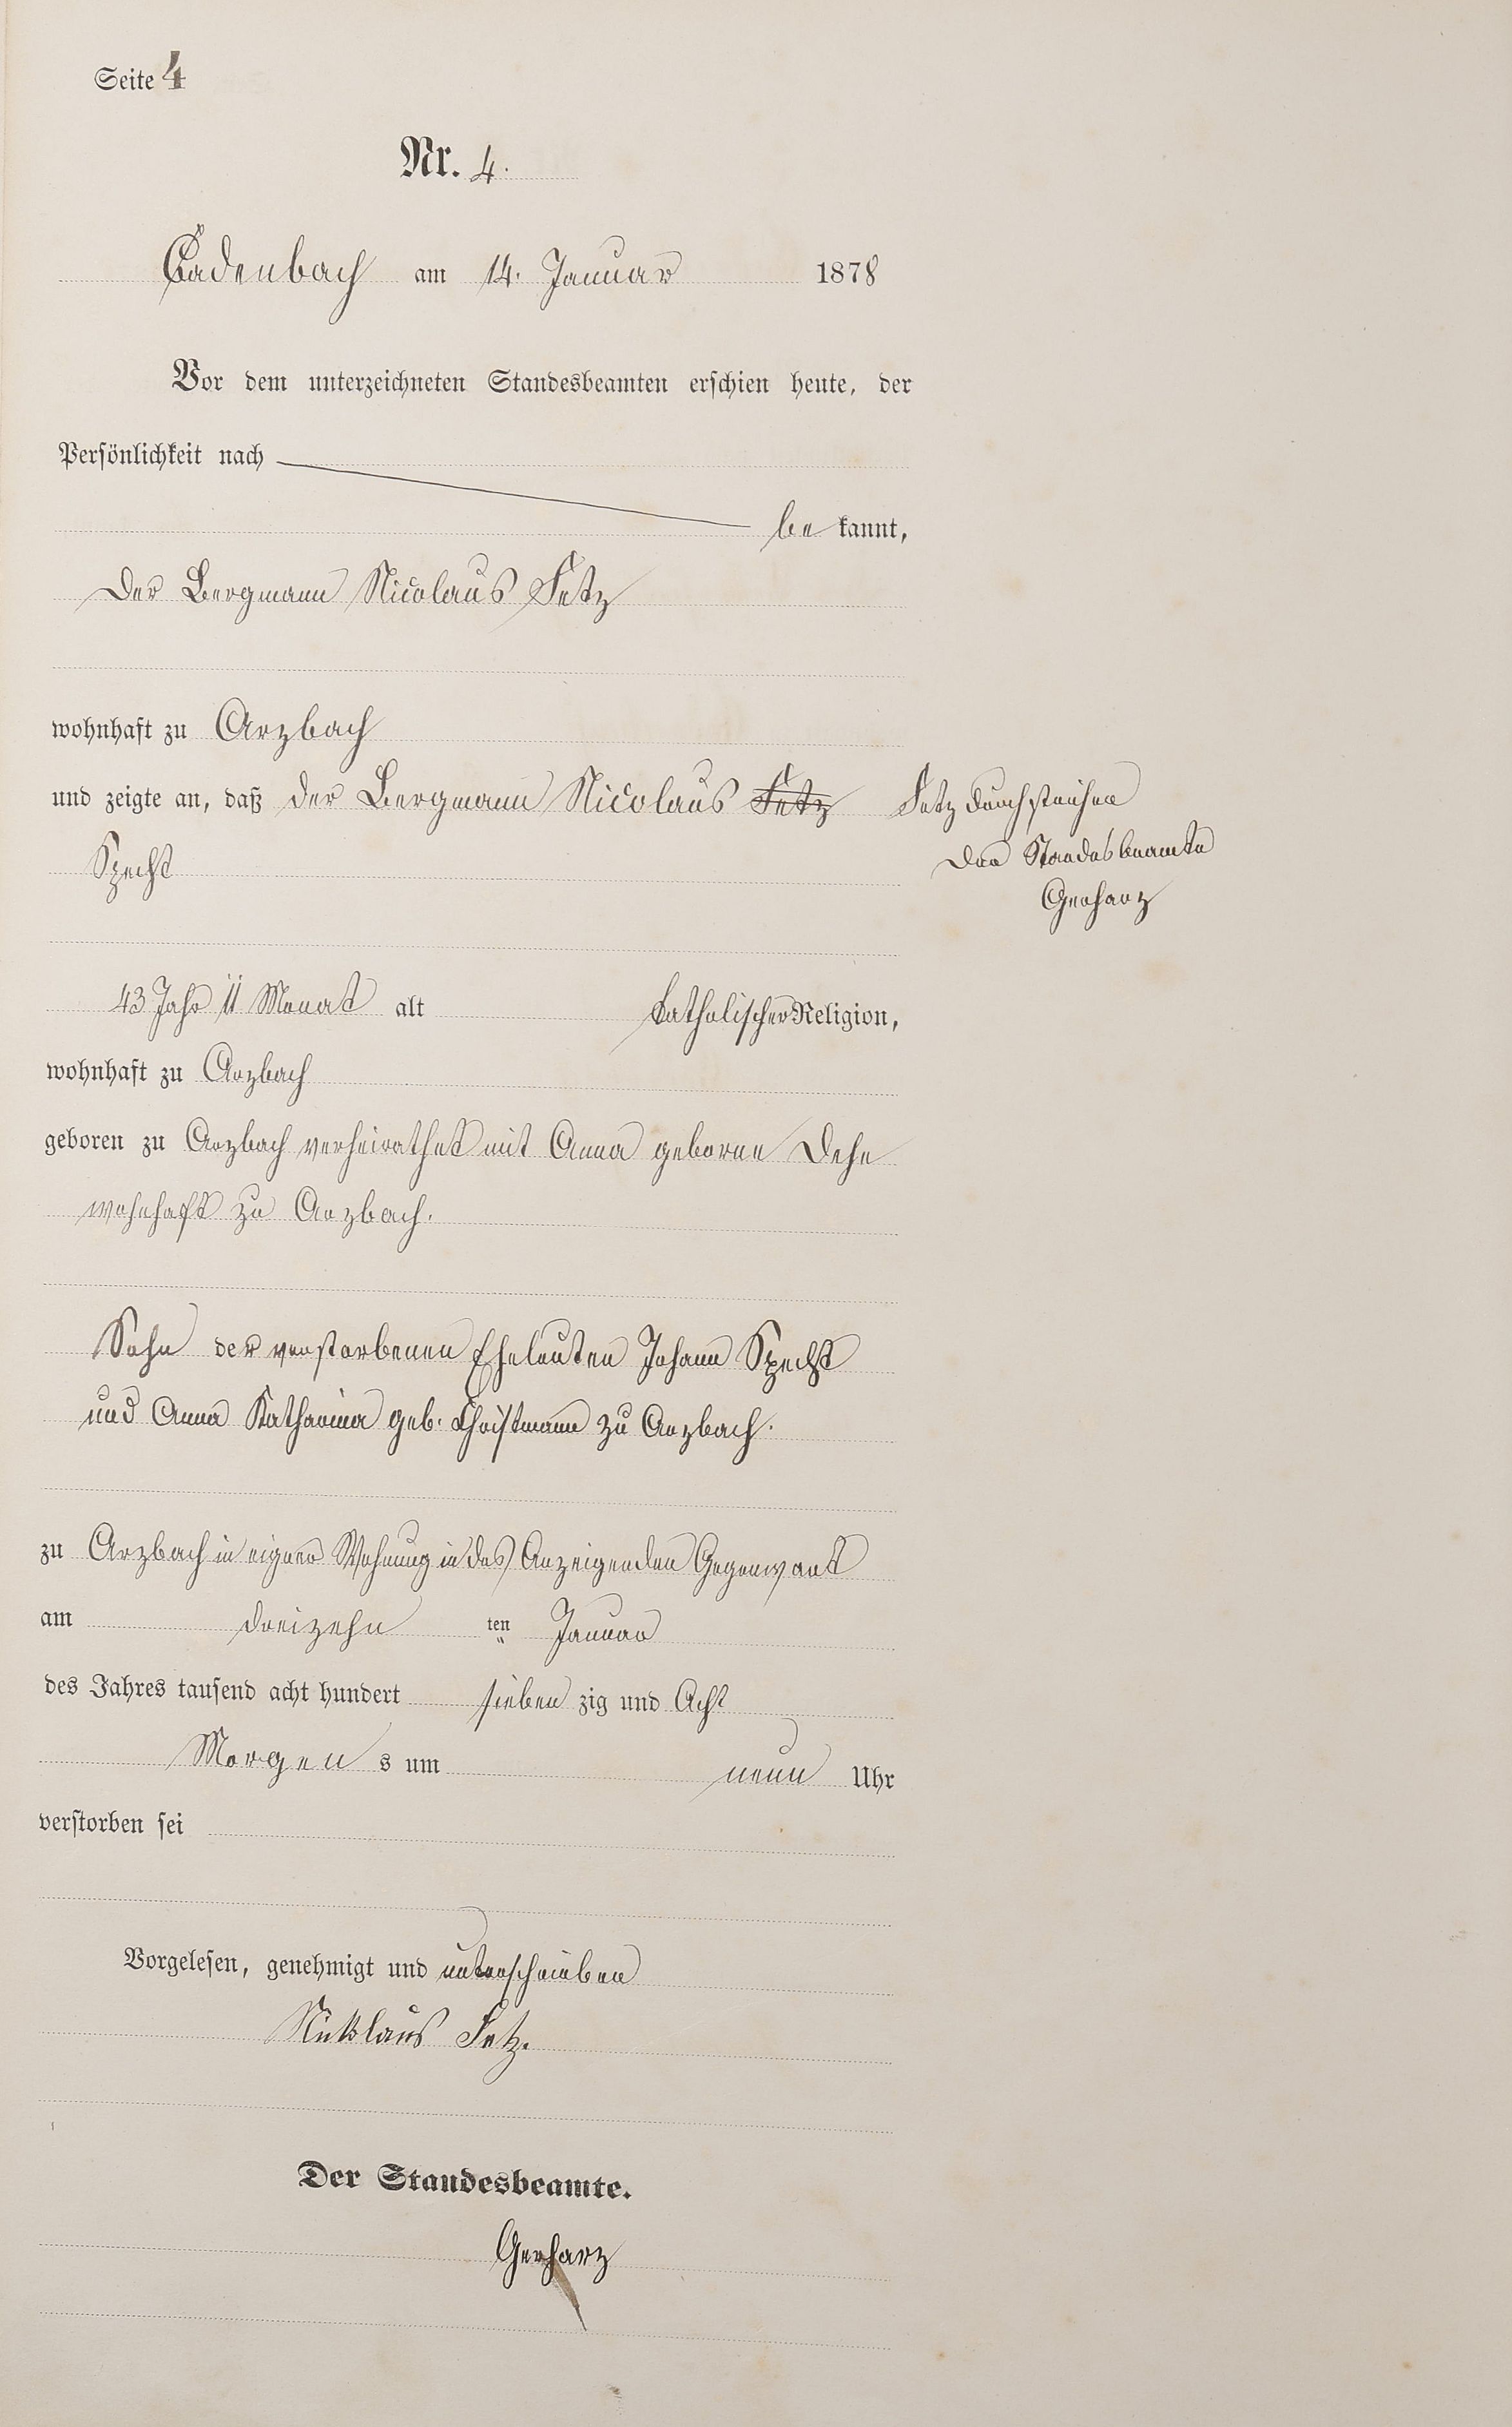 Seite 4
Nr. 4.
Cadenbach am 14. Januar 1878
Vor dem unterzeichneten Standesbeamten erschien heute, der
Persönlichkeit nach
be kannt,
Der Bergmann Nicolaus Fetz
wohnhaft zu Arzbach
und zeigte an, daß der Bergmann Nicolaus Fetz
Fetz durchstrichen
Der Standesbeamte
Gerharz
Specht
43 Jahr 11 Monat alt katholischer Religion,
wohnhaft zu Arzbach
geboren zu Arzbach verheirathet mit Anna geborne Dehe
wohnhaft zu Arzbach.
Sohn der verstorbenen Eheleuten Johann Specht
und Anna Katharina geb. Christmann zu Arzbach.
zu Arzbach in eigner Wohnung in des Anzeigenden Gegenwart
am dreizehn ten Januar
des Jahres tausend acht hundert sieben zig und Acht
Morgen s um neun Uhr
verstorben sei
Vorgelesen, genehmigt und unterschrieben
Niklaus Fetz.
Der Standesbeamte.
Gerharz